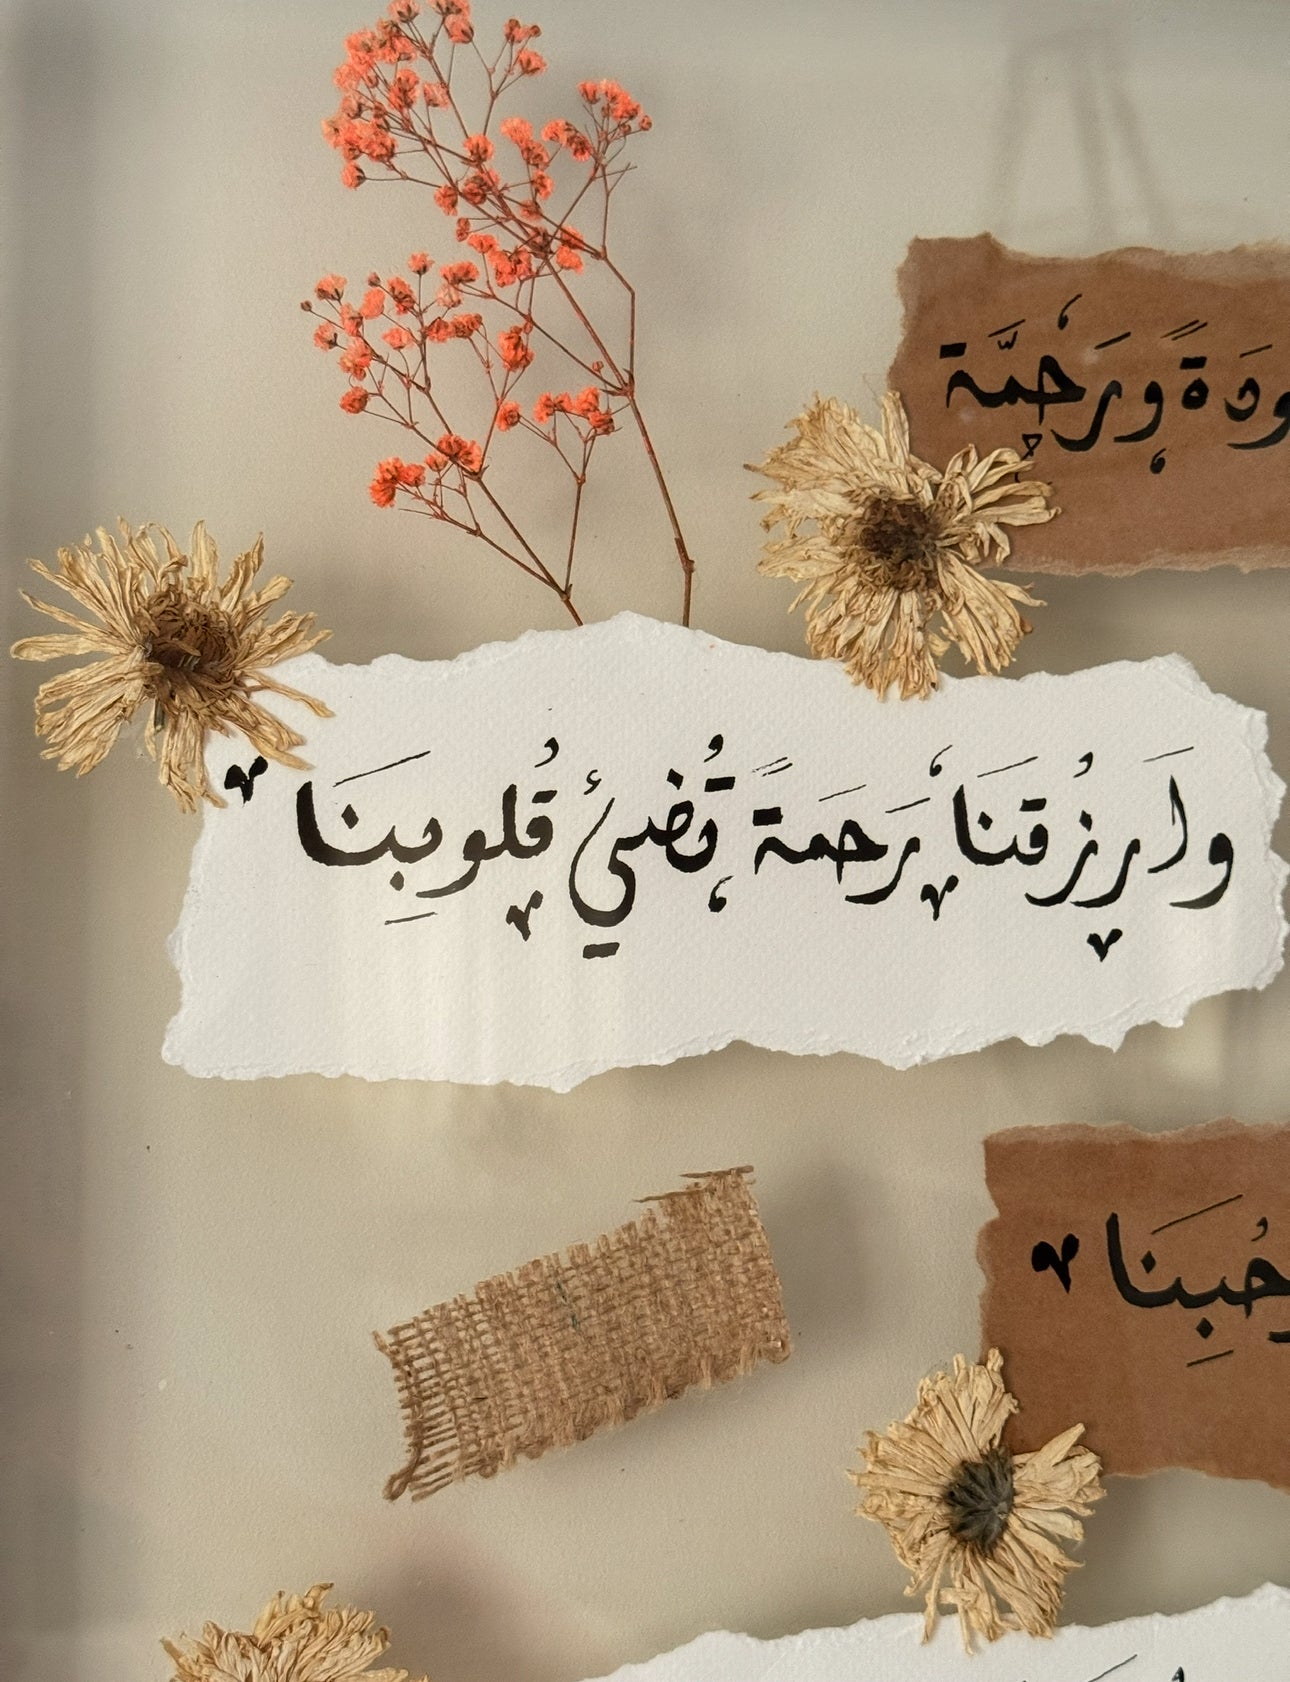 ودةً ورَحمَّة
وارزُقنَا رَحمَةً تُضيئُ قُلوبِنَا
حُبِنَا